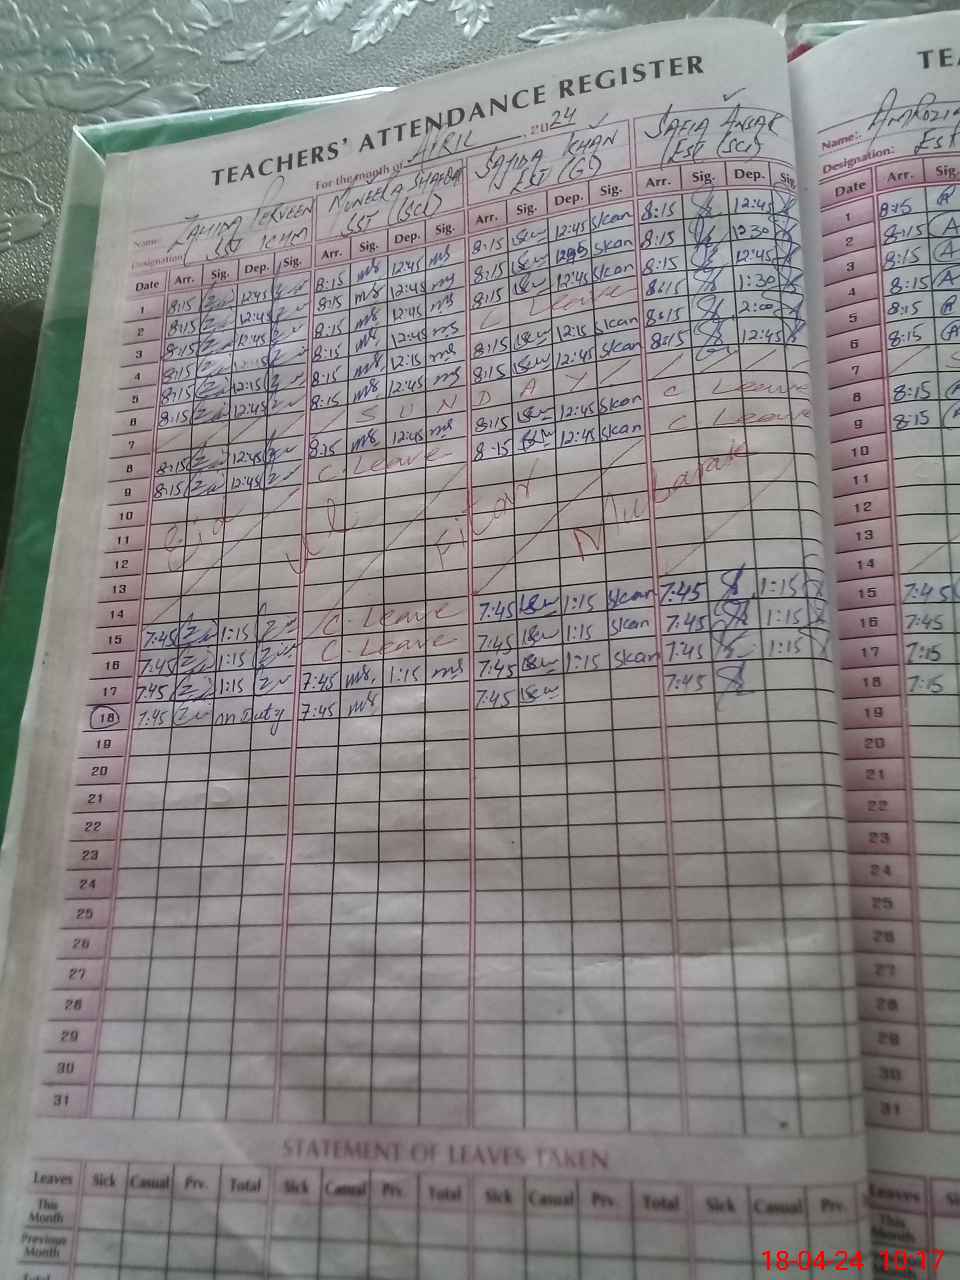 TEACHERS' ATTENDANCE REGISTER
TEA
For the month of APRIL, 2024
Name: ZAHIDA PERVEEN MUNEEZA SHAFQAT SAJIDA KHAN SAFIA ANSAR
Name:
Designation: SST SST (SCI) EST (G) EST (SCI)
Designation: EST
Date Arr. Sig. Dep. Sig. Arr. Sig. Dep. Sig. Arr. Sig. Dep. Sig. Arr. Sig. Dep. Sig. Date Arr. Sig.
1 8:15 12:45 8:15 ms 12:45 ms 8:15 12:45 skan 8:15 12:45 1 8:15 A
2 8:15 12:45 8:15 ms 12:45 ms 8:15 skan 8:15 12:30 2 8:15 A
3 8:15 12:45 8:15 ms 12:45 ms 8:15 12:45 skan 8:15 12:45 3 8:15 A
4 8:15 12:45 8:15 ms 12:45 ms C Leave 8:15 1:30 4 8:15 A
5 8:15 12:15 8:15 ms 12:15 ms 8:15 12:15 skan 8:15 2:00 5 8:15 A
6 8:15 12:45 8:15 ms 12:45 ms 8:15 12:45 skan 8:15 12:45 6 8:15 A
7 SUNDAY 7 S
8 8:15 12:45 8:15 ms 12:45 ms 8:15 12:45 skan C Leave 8 8:15
9 8:15 12:45 C. Leave 8:15 12:45 skan C Leave 9 8:15
10 10
11 Eid ul Fitar Mubarak 11
12 12
13 13
14 14
15 7:45 1:15 C. Leave 7:45 1:15 skan 7:45 1:15 15 7:45
16 7:45 1:15 C. Leave 7:45 1:15 skan 7:45 1:15 16 7:45
17 7:45 1:15 7:45 ms 1:15 ms 7:45 1:15 skan 7:45 1:15 17 7:15
18 7:45 on Duty 7:45 ms 7:45 7:45 18 7:15
19 19
20 20
21 21
22 22
23 23
24 24
25 25
26 26
27 27
28 28
29 29
30 30
31 31
STATEMENT OF LEAVES TAKEN
Leaves Sick Casual Prv. Total Sick Casual Prv. Total Sick Casual Prv. Total Sick Casual Prv. Leaves
This Month This Month
Previous Month Previous Month
Total
18-04-24 10:17